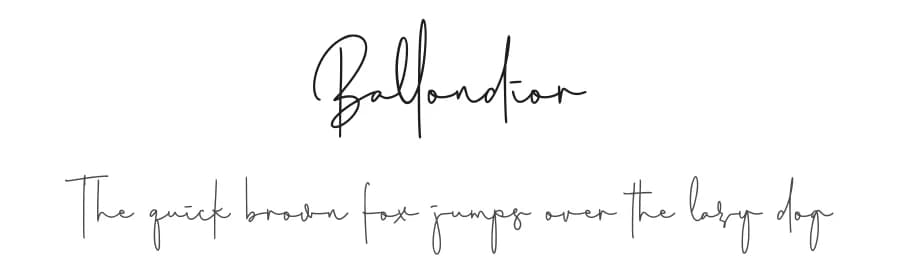 Ballondior
The quick brown fox jumps over the lazy dog